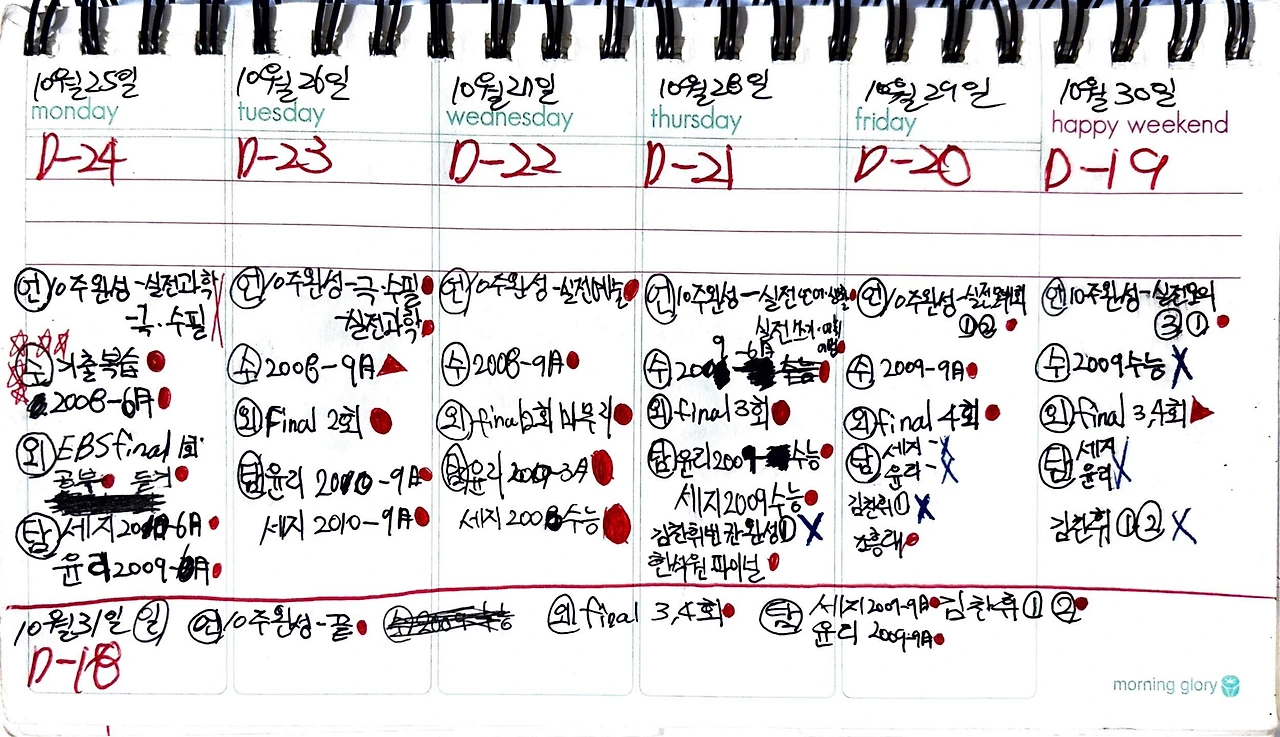 10월25일
monday
D-24
언 10주완성-실전과학
-극.수필
수 기출복습
2008-6月
외 EBS final 1회
공부 듣기
탐 세지 2010-6月
윤리 2009-6月
10월26일
tuesday
D-23
언 10주완성-극.수필
-실전과학
수 2008-9月
외 Final 2회
탐 윤리 2010-9月
세지 2010-9月
10월27일
wednesday
D-22
언 10주완성-실전예술
수 2008-9月
외 final 2회 마무리
탐 윤리 2009-3月
세지 2008수능
10월28일
thursday
D-21
언 10주완성-실전
실전쓰기.어휘
어법
수 2009-6月
외 final 3회
탐 윤리2009-수능
세지2009수능
김찬휘 완성①
한석원 파이널
10월29일
friday
D-20
언 10주완성-실전모의
①②
수 2009-9月
외 final 4회
탐 세지-
윤리-
김찬휘①
10월30일
happy weekend
D-19
언 10주완성-실전모의
③①
수 2009수능
외 final 3,4회
탐 세지
윤리
김찬휘 ①②
10월31일 일 언 10주완성-끝 외 final 3,4회 탐 세지2009-9月 김찬휘 ① ②
윤리 2009-9月
D-18
morning glory